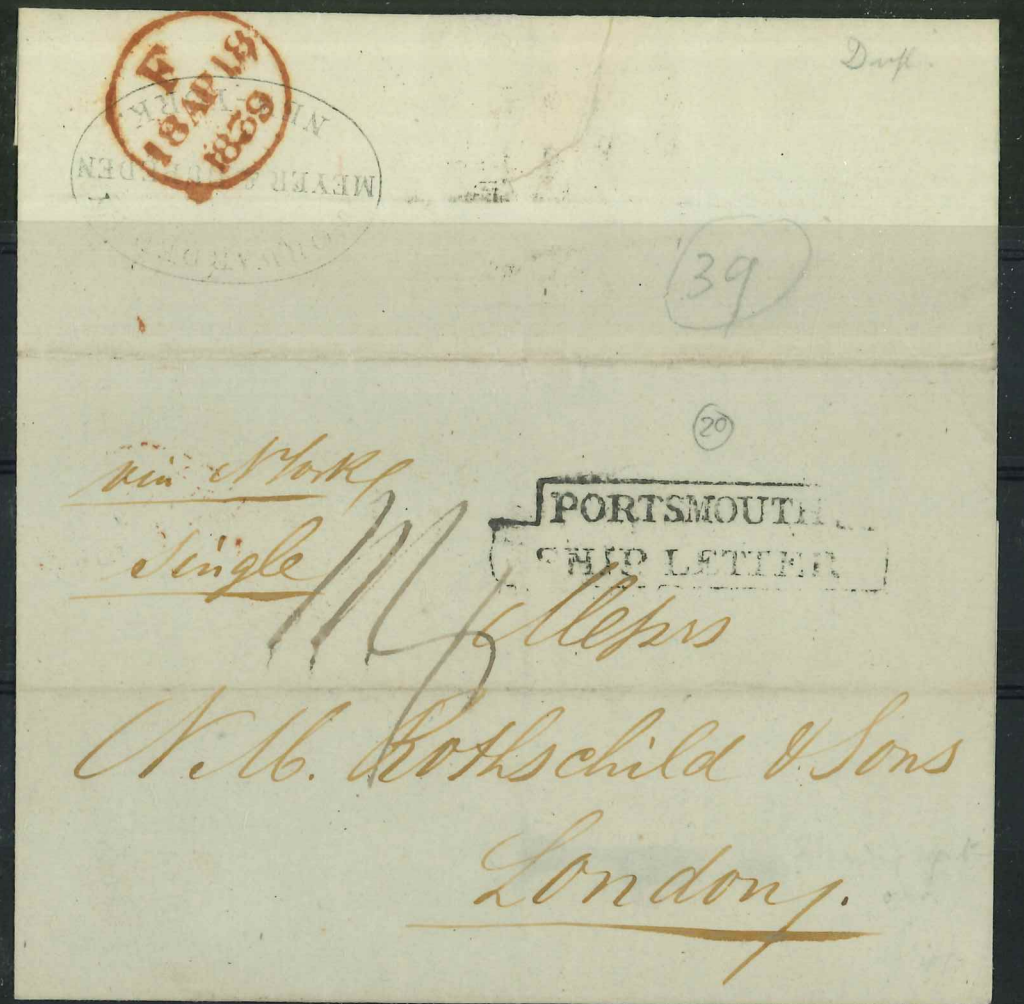 F
18 AP 18
1839
NEW YORK
MEYER &
FORWARDED
39
20
via N York
Single
PORTSMOUTH
SHIP LETTER
Messrs
N. M. Rothschild & Sons
London